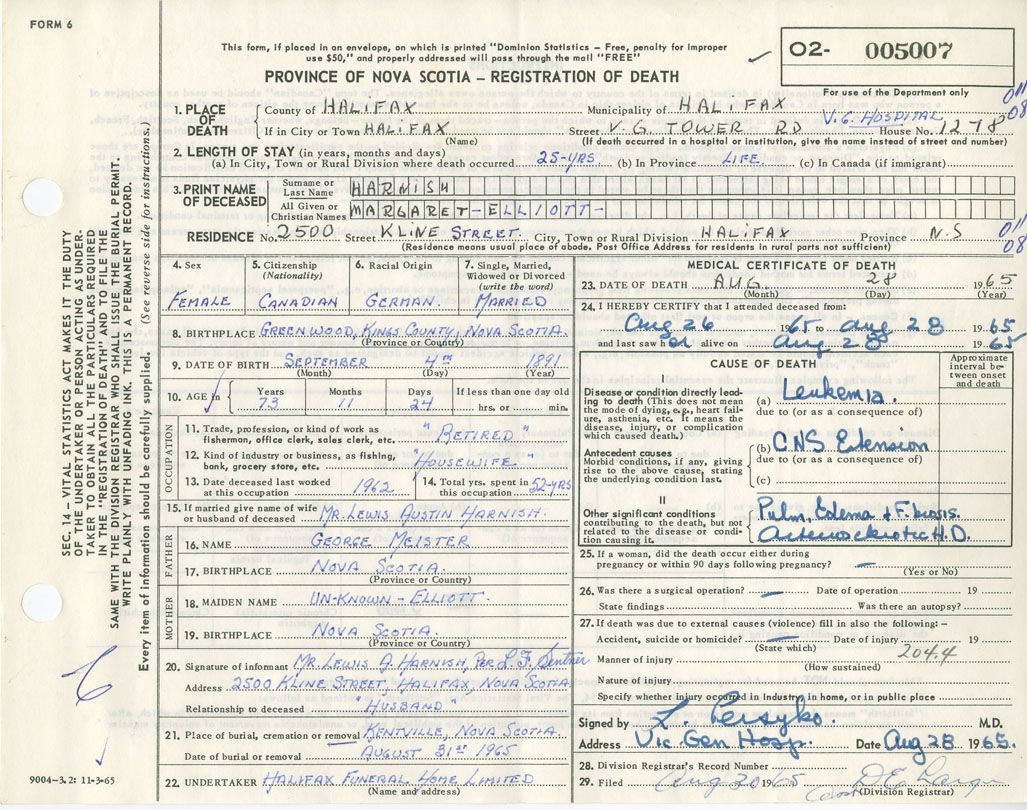 FORM 6
This form, if placed in an envelope, on which is printed "Dominion Statistics – Free, penalty for improper
use $50," and properly addressed will pass through the mail "FREE"
PROVINCE OF NOVA SCOTIA – REGISTRATION OF DEATH
02- 005007
For use of the Department only
011
08
1. PLACE OF DEATH
County of HALIFAX Municipality of HALIFAX V.G. HOSPITAL
If in City or Town HALIFAX Street V.G. TOWER RD House No. 1278
(Name) (If death occurred in a hospital or institution, give the name instead of street and number)
2. LENGTH OF STAY (in years, months and days)
(a) In City, Town or Rural Division where death occurred 25-YRS (b) In Province LIFE (c) In Canada (if immigrant)
3. PRINT NAME OF DECEASED
Surname or Last Name HARNISH
All Given or Christian Names MARGARET-ELLIOTT-
RESIDENCE No. 2500 Street KLINE STREET. City, Town or Rural Division HALIFAX Province N.S
(Residence means usual place of abode, Post Office Address for residents in rural parts not sufficient)
011
08
4. Sex
FEMALE
5. Citizenship (Nationality)
CANADIAN
6. Racial Origin
GERMAN.
7. Single, Married, Widowed or Divorced (write the word)
MARRIED
8. BIRTHPLACE GREENWOOD, KINGS COUNTY, NOVA SCOTIA.
(Province or Country)
9. DATE OF BIRTH SEPTEMBER 4TH 1891
(Month) (Day) (Year)
10. AGE in Years Months Days If less than one day old
73 11 24 hrs. or min.
OCCUPATION
11. Trade, profession, or kind of work as
fisherman, office clerk, sales clerk, etc. "RETIRED"
12. Kind of industry or business, as fishing,
bank, grocery store, etc. "HOUSEWIFE"
13. Date deceased last worked at this occupation 1962
14. Total yrs. spent in this occupation 52-YRS
15. If married give name of wife
or husband of deceased MR. LEWIS AUSTIN HARNISH.
FATHER
16. NAME GEORGE MEISTER
17. BIRTHPLACE NOVA SCOTIA
(Province or Country)
MOTHER
18. MAIDEN NAME UN-KNOWN - ELLIOTT.
19. BIRTHPLACE NOVA SCOTIA.
(Province or Country)
20. Signature of informant MR. LEWIS A. HARNISH, PER L. F.
Address 2500 KLINE STREET, HALIFAX, NOVA SCOTIA
Relationship to deceased "HUSBAND"
21. Place of burial, cremation or removal KENTVILLE, NOVA SCOTIA
Date of burial or removal AUGUST 31ST 1965
22. UNDERTAKER HALIFAX FUNERAL HOME LIMITED
(Name and address)
MEDICAL CERTIFICATE OF DEATH
23. DATE OF DEATH AUG. 28 1965
(Month) (Day) (Year)
24. I HEREBY CERTIFY that I attended deceased from:
Aug 26 1965 to Aug 28 1965
and last saw her alive on Aug 28 1965
CAUSE OF DEATH
Approximate interval between onset and death
I
Disease or condition directly leading to death (This does not mean the mode of dying, e.g., heart failure, asthenia, etc. It means the disease, injury, or complication which caused death.)
(a) Leukemia.
due to (or as a consequence of)
Antecedent causes
Morbid conditions, if any, giving rise to the above cause, stating the underlying condition last.
(b) CNS Extension
due to (or as a consequence of)
(c)
II
Other significant conditions
contributing to the death, but not related to the disease or condition causing it.
Pulm. Edema + Fibrosis.
Arteriosclerotic H.D.
25. If a woman, did the death occur either during
pregnancy or within 90 days following pregnancy? —
(Yes or No)
26. Was there a surgical operation? — Date of operation 19
State findings Was there an autopsy?
27. If death was due to external causes (violence) fill in also the following:–
Accident, suicide or homicide? — Date of injury 19
(State which) 204.4
Manner of injury
(How sustained)
Nature of injury
Specify whether injury occurred in industry, in home, or in public place
Signed by L. M.D.
Address Vic Gen Hosp. Date Aug 28 1965.
28. Division Registrar's Record Number
29. Filed Aug 1965
(Division Registrar)
SEC. 14 – VITAL STATISTICS ACT MAKES IT THE DUTY
OF THE UNDERTAKER OR PERSON ACTING AS UNDER-
TAKER TO OBTAIN ALL THE PARTICULARS REQUIRED
IN THE "REGISTRATION OF DEATH" AND TO FILE THE
SAME WITH THE DIVISION REGISTRAR WHO SHALL ISSUE THE BURIAL PERMIT.
WRITE PLAINLY WITH UNFADING INK. THIS IS A PERMANENT RECORD.
Every item of information should be carefully supplied. (See reverse side for instructions.)
9004-3.2: 11-3-65